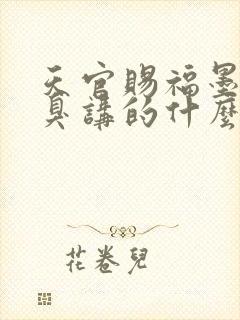 天官賜福墨
具講的什麼
花卷兒